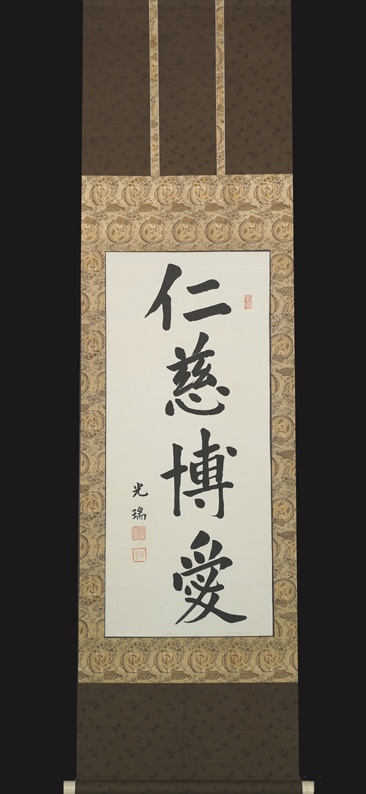 仁慈博愛
光瑞